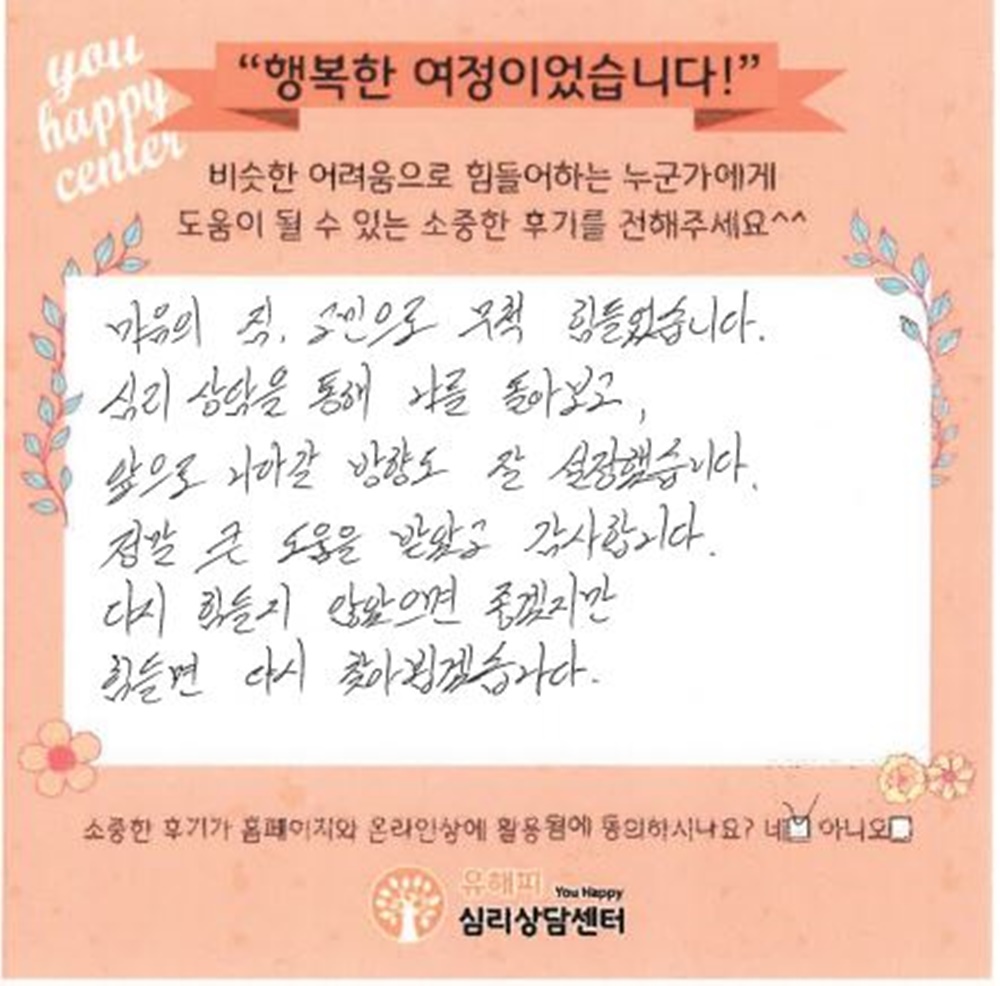 you
happy
center
“행복한 여정이었습니다!”
비슷한 어려움으로 힘들어하는 누군가에게
도움이 될 수 있는 소중한 후기를 전해주세요^^
마음의 짐, 고민으로 무척 힘들었습니다.
심리 상담을 통해 나를 돌아보고,
앞으로 나아갈 방향도 잘 설정했습니다.
정말 큰 도움을 받았고 감사합니다.
다시 힘들지 않았으면 좋겠지만
힘들면 다시 찾아뵙겠습니다.
소중한 후기가 홈페이지와 온라인상에 활용됨에 동의하시나요? 네 아니오
유해피 You Happy
심리상담센터